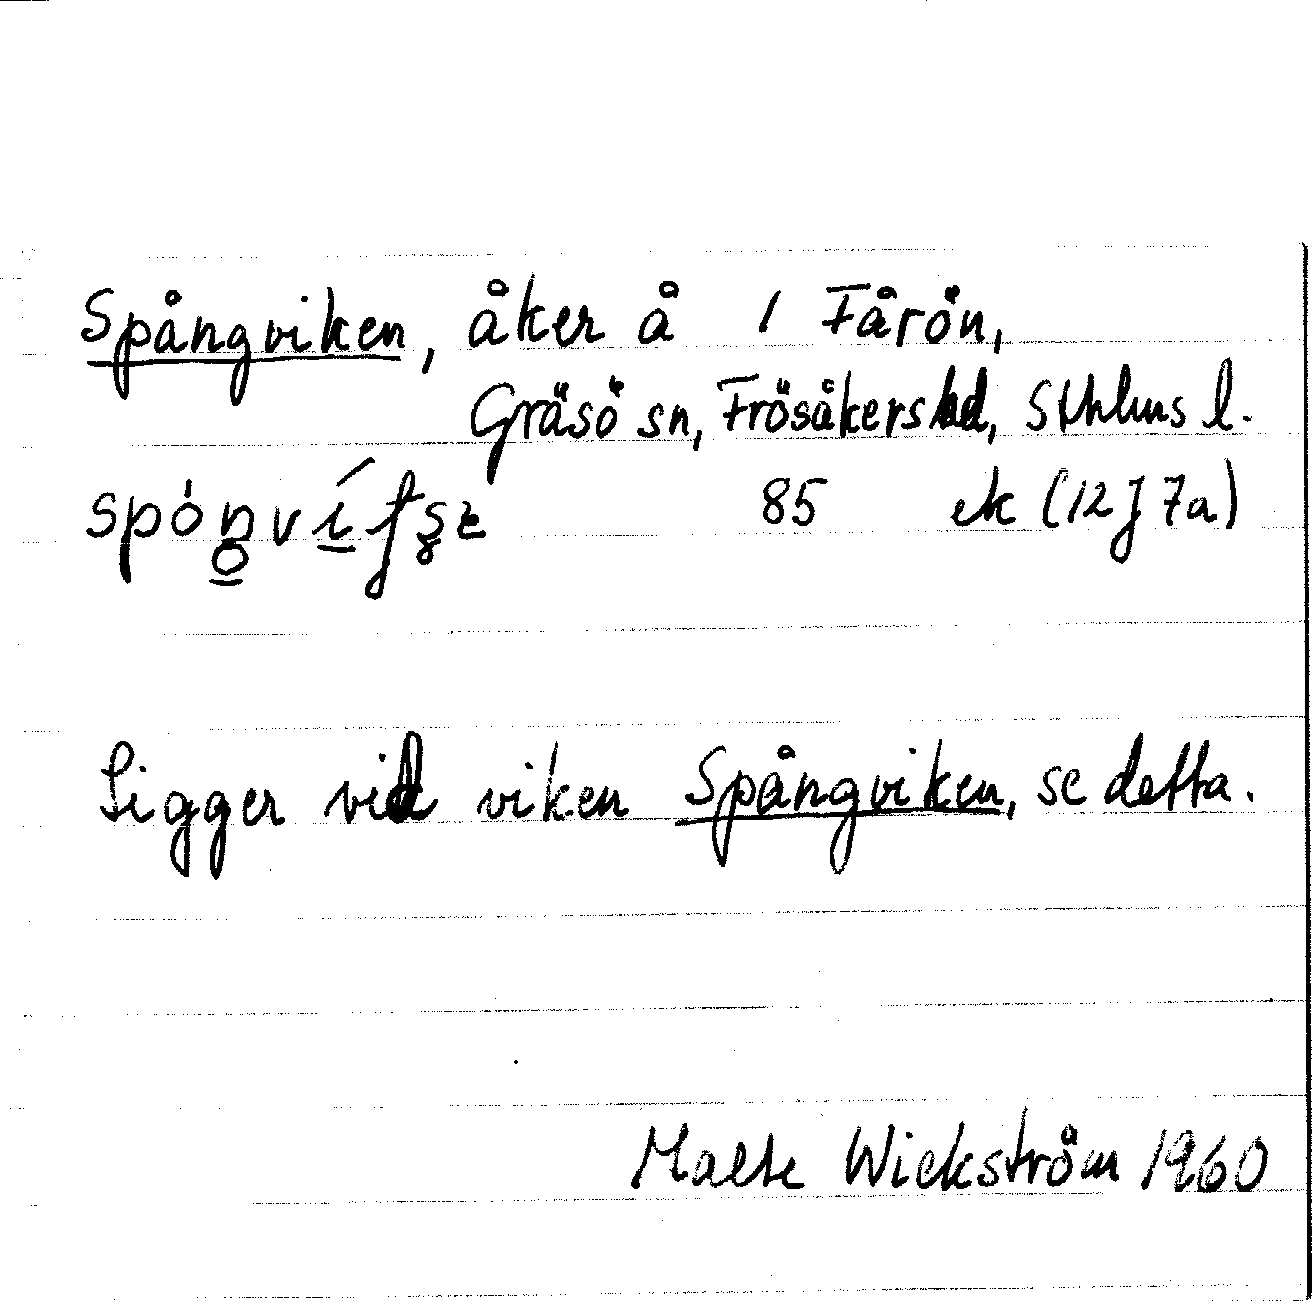 Spångviken, åker å 1 Fårön,
Gräsö sn, Frösåkers hd, Sthlms l.
85 ek (12J 7a)
Ligger vid viken Spångviken, se detta.
Malte Wickström 1960